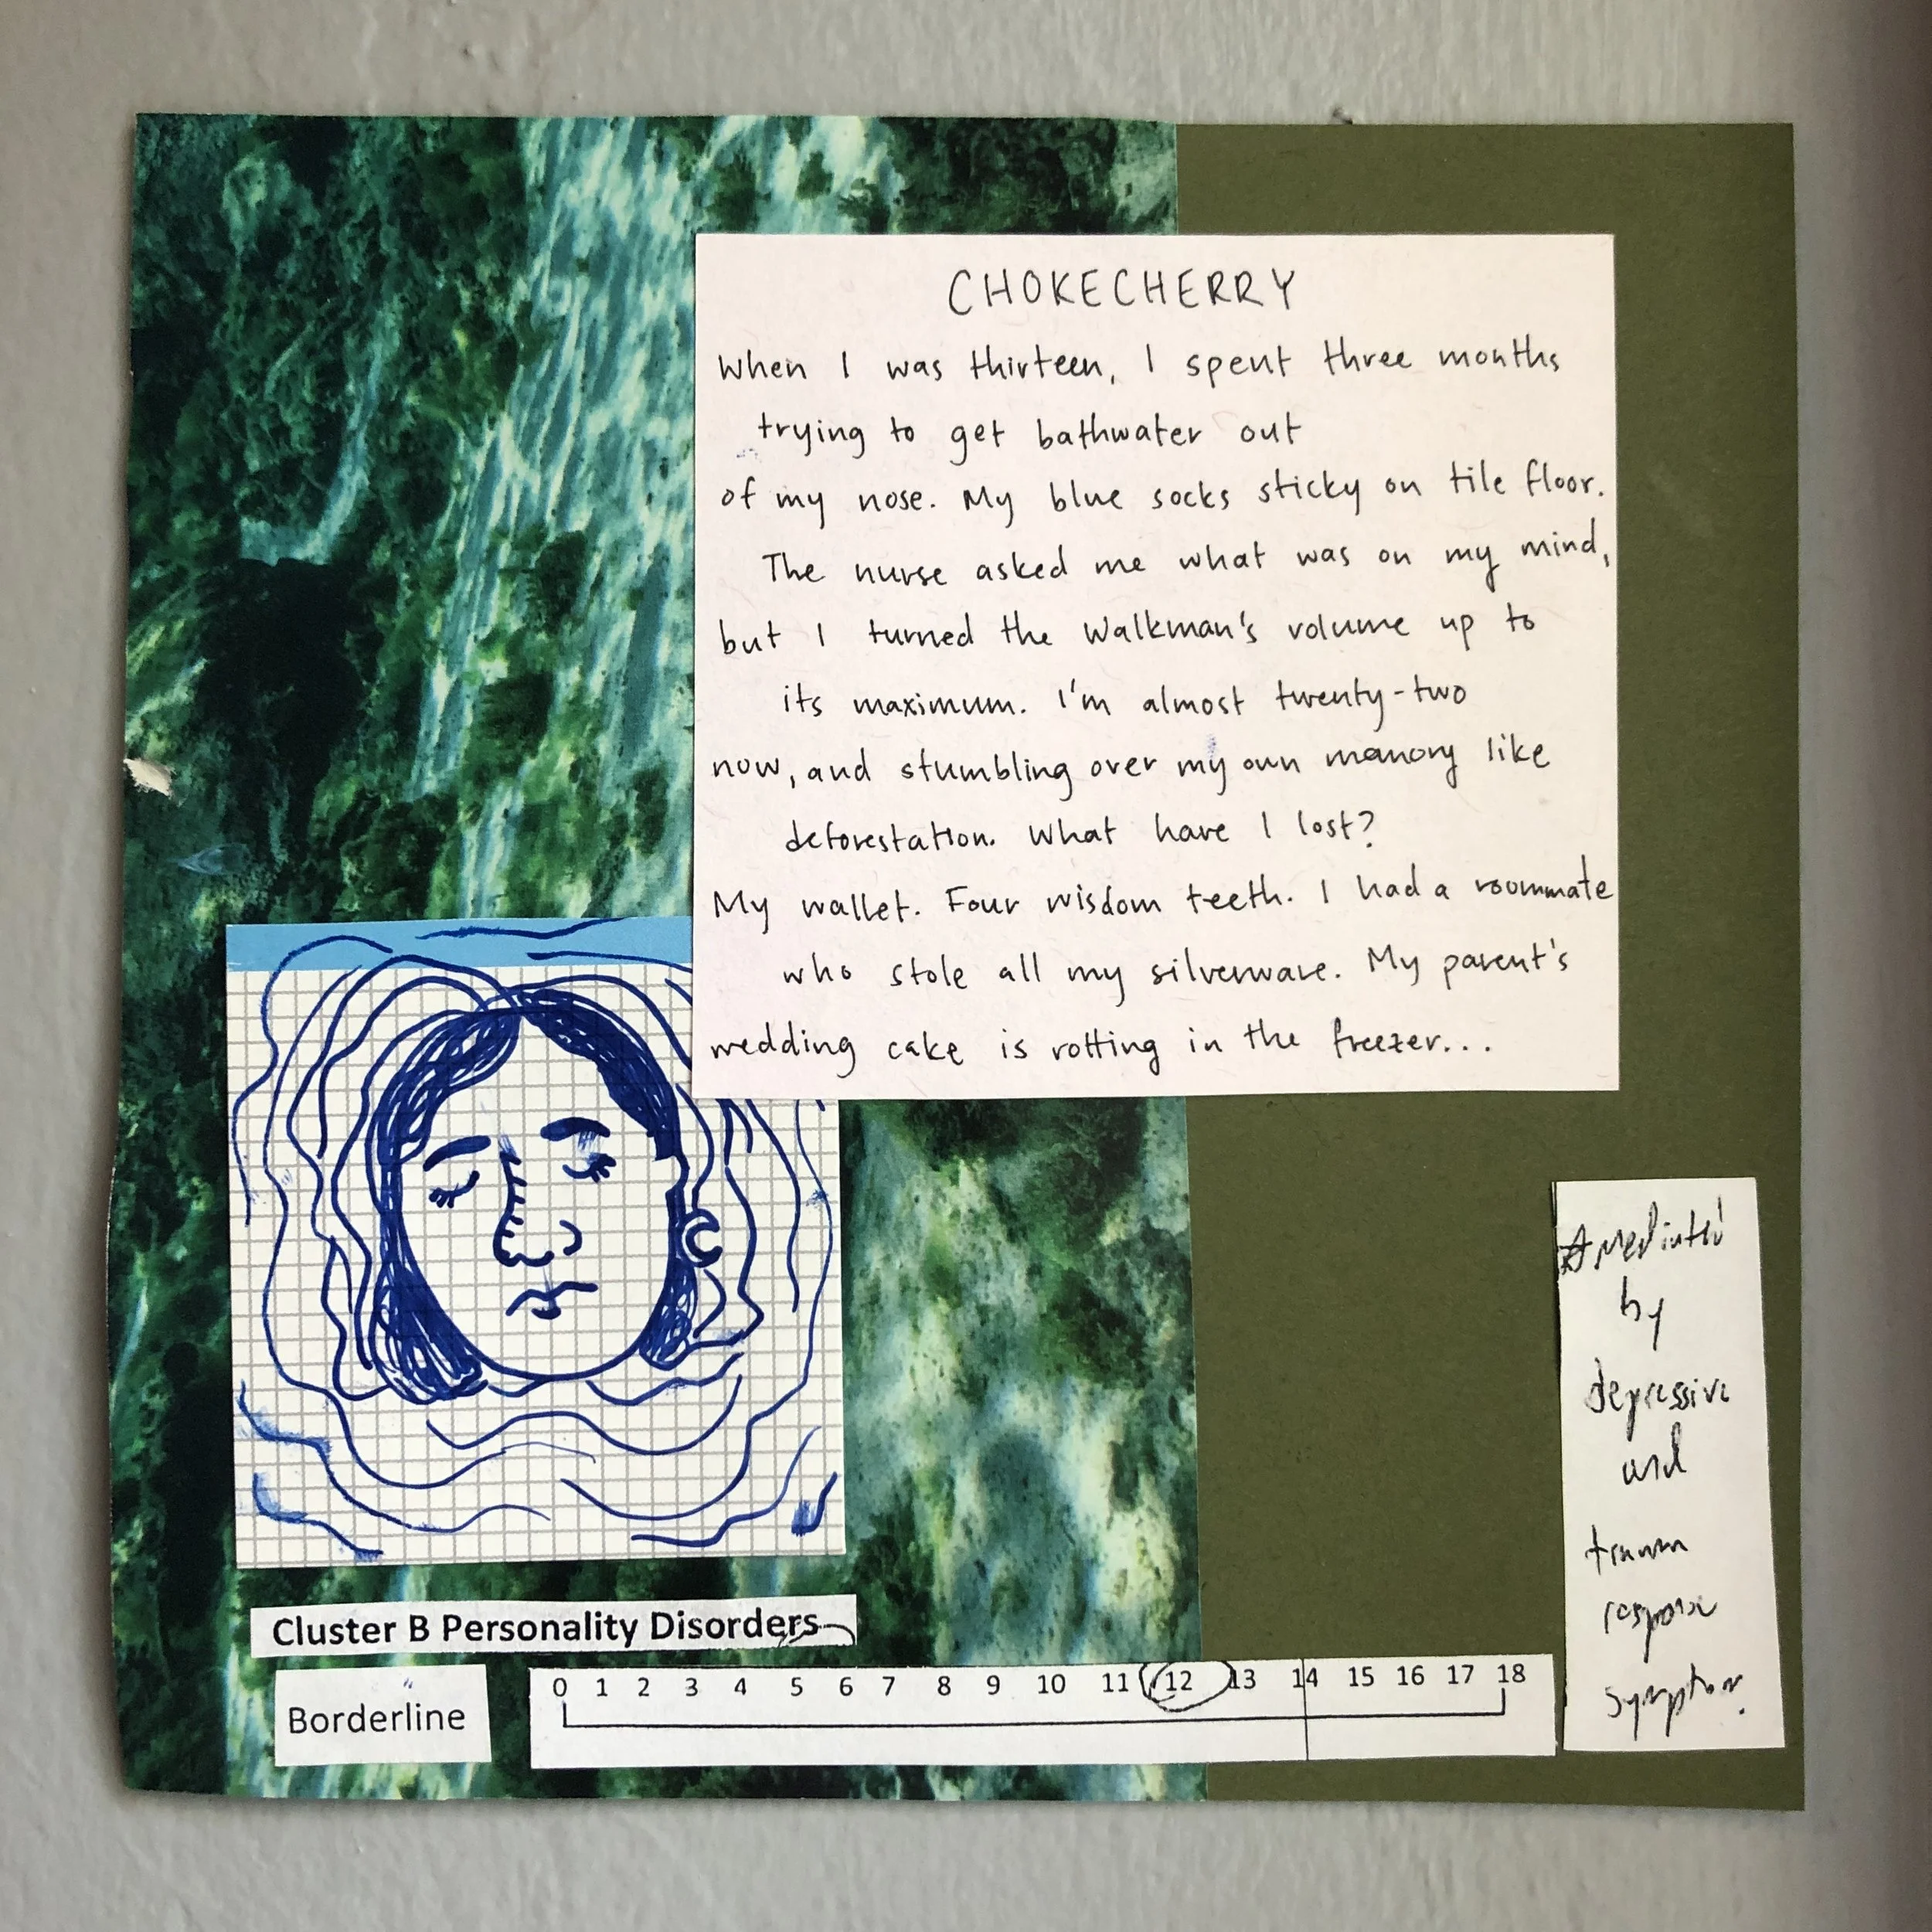 CHOKECHERRY
When I was thirteen, I spent three months
trying to get bathwater out
of my nose. My blue socks sticky on tile floor.
The nurse asked me what was on my mind,
but I turned the Walkman's volume up to
its maximum. I'm almost twenty-two
now, and stumbling over my own memory like
deforestation. What have I lost?
My wallet. Four wisdom teeth. I had a roommate
who stole all my silverware. My parent's
wedding cake is rotting in the freezer...
Cluster B Personality Disorders
Borderline
0 1 2 3 4 5 6 7 8 9 10 11 12 13 14 15 16 17 18
by
depressive
and
trauma
response
symptom.